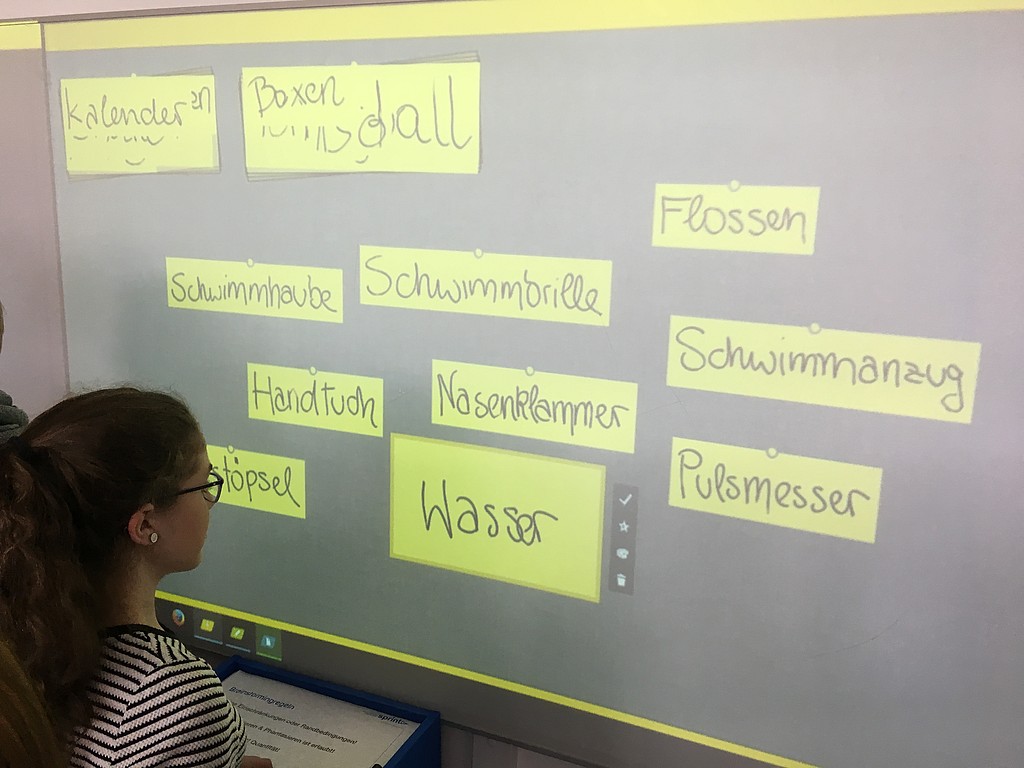 Kalender
Boxen
all
Flossen
Schwimmhaube
Schwimmbrille
Schwimmanzug
Handtuch
Nasenklammer
stöpsel
Wasser
Pulsmesser
Brainstormingregeln
Einschränkungen oder Randbedingungen!
& Phantasieren ist erlaubt!
Quantität
sprint